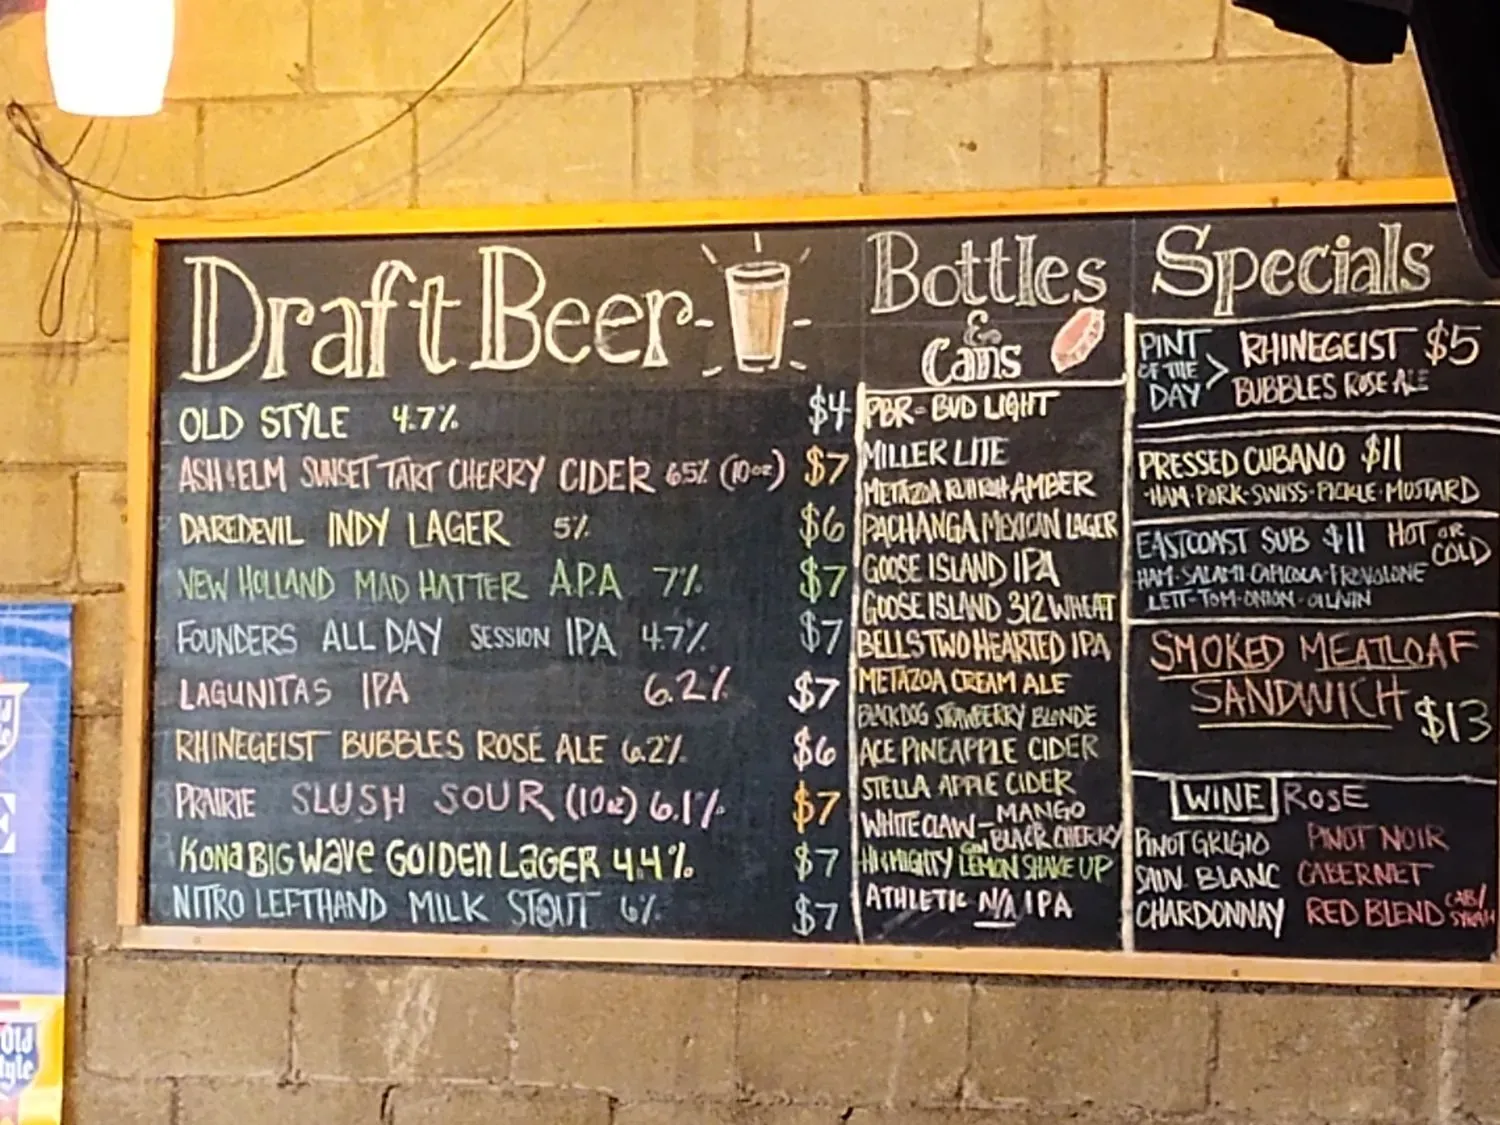 Draft Beer
OLD STYLE 4.7% $4
ASH & ELM SUNSET TART CHERRY CIDER 6.5% (10oz) $7
DAREDEVIL INDY LAGER 5% $6
NEW HOLLAND MAD HATTER A.P.A 7% $7
FOUNDERS ALL DAY SESSION IPA 4.7% $7
LAGUNITAS IPA 6.2% $7
RHINEGEIST BUBBLES ROSÉ ALE 6.2% $6
PRAIRIE SLUSH SOUR (10oz) 6.1% $7
KONA BIG WAVE GOLDEN LAGER 4.4% $7
NITRO LEFTHAND MILK STOUT 6% $7
Bottles
&
Cans
PBR - BUD LIGHT
MILLER LITE
METAZOA AMBER
PACHANGA MEXICAN LAGER
GOOSE ISLAND IPA
GOOSE ISLAND 312 WHEAT
BELLS TWO HEARTED IPA
METAZOA CREAM ALE
BLACKDOG STRAWBERRY BLONDE
ACE PINEAPPLE CIDER
STELLA APPLE CIDER
WHITE CLAW - MANGO
BLACK CHERRY
HI & MIGHTY GIN LEMON SHAKE UP
ATHLETIC N/A IPA
Specials
PINT OF THE DAY > RHINEGEIST $5
BUBBLES ROSE ALE
PRESSED CUBANO $11
·HAM·PORK·SWISS·PICKLE·MUSTARD
EASTCOAST SUB $11 HOT OR COLD
HAM·SALAMI·CAPICOLA·PROVOLONE
LETT·TOM·ONION·OIL
SMOKED MEATLOAF
SANDWICH $13
WINE ROSE
PINOT GRIGIO PINOT NOIR
SAUV. BLANC CABERNET
CHARDONNAY RED BLEND CAB/
SYRAH
Old
tyle